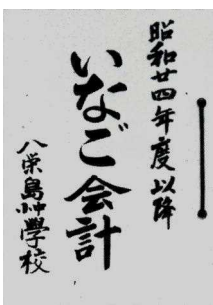 昭和廿四年度以降
いなご会計
八栄島小學校